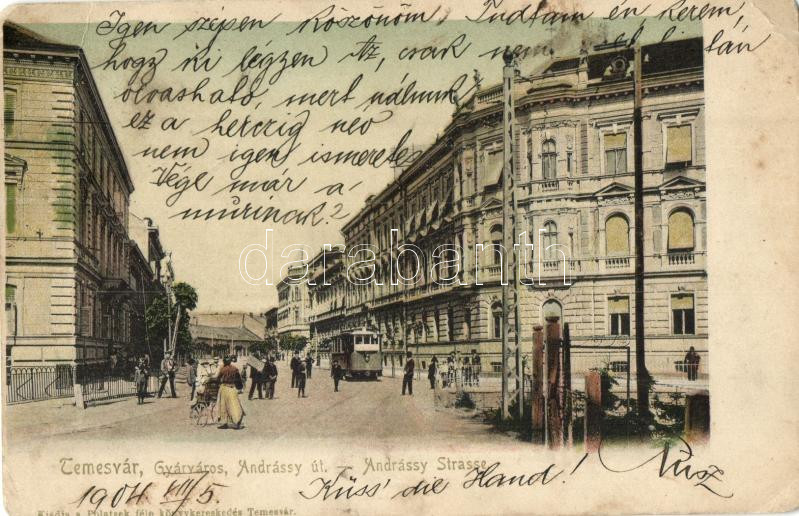 Igen szépen köszönöm, Tudtam én kérem,
hogy ki légyen Az, csak nem
olvasható, mert nálunk
ez a herczig név
nem igen ismeretes
Vége már a
murinak?
darabanth
Temesvár, Gyárváros, Andrássy út. — Andrássy Strasse.
1904 VIII/5. Küss' die Hand!
Kiadja a Polatsek féle könyvkereskedés Temesvár.